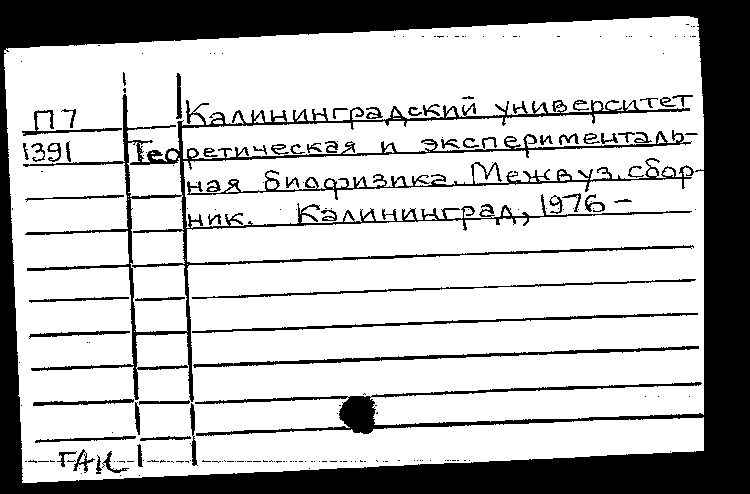 П7 Калининградский университет
1391 Теоретическая и эксперименталь-
ная биофизика. Межвуз. сбор-
ник. Калининград, 1976 –
ГАК